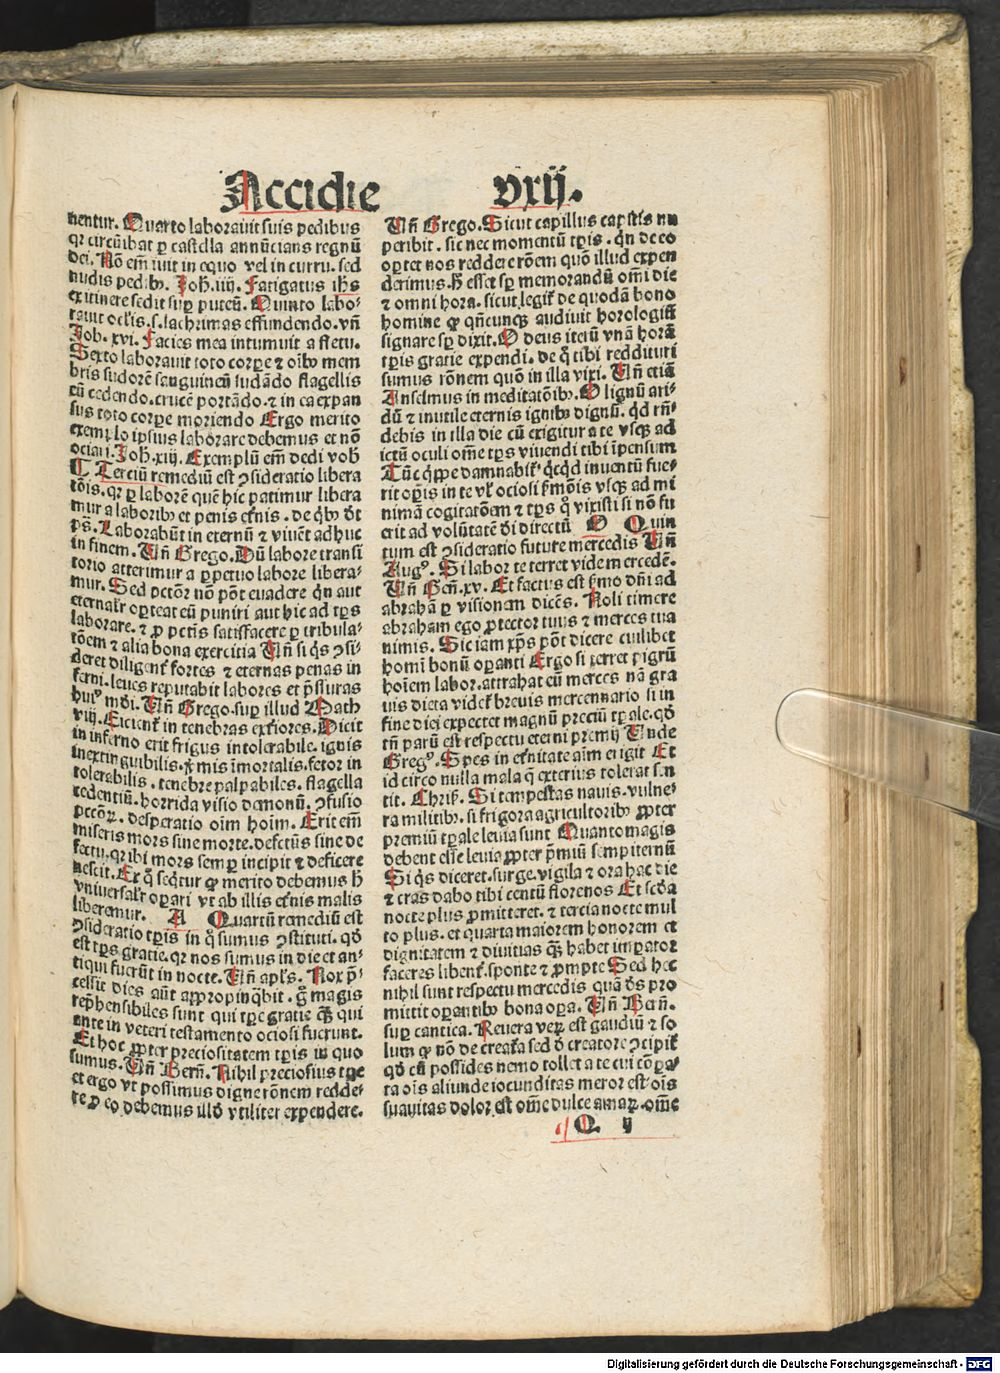 Accidie vxij.
nentur. Quarto laborauit suis pedibus
qꝛ circuībat ꝑ castella annūcians regnū
dei. Nō em̄ iuit in equo vel in curru. sed
nudis pedibꝰ. Joh̄. iiij. Fatigatus ihs
ex itinere sedit suꝑ puteū. Quinto labo⸗
rauit oclīs. s. lachrimas effundendo. vn̄
Job. xvi. Facies mea intumuit a fletu.
Sexto laborauit toto corꝑe ⁊ oībꝰ mem
bris sudorē sanguineū sudādo flagellis
cū cedendo. crucē portādo. ⁊ in ea expan
sus toto corꝑe moriendo Ergo merito
exemplo ipsius laborare debemus et nō
ociari. Joh̄. xiij. Exemplū em̄ dedi vob̄
¶ Terciū remediū est ꝯsideratio libera
tōis. qꝛ ꝑ laborē quē hic patimur libera
mur a laboribꝰ et penis et̓nis. de qͥbꝰ dt̄
ps̄. Laborabūt in eternū ⁊ viuēt adhuc
in finem. Vn̄ Grego. Dū labore transi
torio atterimur a ꝑpetuo labore libera⸗
mur. Sed pctōr nō pōt euadere qn̄ aut
eternalr̄ oꝑteat eū puniri aut hic ad tp̄s
laborare. ⁊ ꝓ pctīs satisfacere ꝑ tribula⸗
tōem ⁊ alia bona exercitia Vn̄ si qͥs ꝯsi⸗
deret diligent̓ fortes ⁊ eternas penas in
ferni. leues reputabit labores et p̄ssuras
huiꝰ mūdi. Vn̄ Grego. suꝑ illud Math
viij. Eicient̓ in tenebras ext̓iores. Dicit
in inferno erit frigus intolerabile. ignis
inextinguibilis. v̓mis īmortalis. fetor in
tolerabilis. tenebre palpabiles. flagella
cedentiū. horrida visio demonū. ꝯfusio
pctōꝝ. desperatio oīm hoīm. Erit em̄
miseris mors sine morte. defectus sine de
fectu. qꝛ ibi mors semꝑ incipit ⁊ deficere
nescit. Ex qͦ seqͥtur ꝙ merito debemus h̄
vniuersalr̄ oꝑari vt ab illis et̓nis malis
liberemur. A Quartū remediū est
ꝯsideratio tꝑis in qͦ sumus ꝯstituti. qd̓
est tp̄s gratie. qꝛ nos sumus in die et an⸗
tiqui fuerūt in nocte. Vn̄ apl̄s. Nox p̄⸗
cessit dies aūt appropinqͣbit. gͦ magis
rep̄hensibiles sunt qui tꝑe gratie qꝫ qui
ante in veteri testamento ociosi fuerunt.
Et hoc ꝓpter preciositatem tꝑis in quo
sumus. Vn̄ Bern̄. Nihil preciosius tꝑe
et ergo vt possimus digne rōnem redde⸗
re ꝓ eo debemus illud vtiliter expendere.
Vn̄ Grego. Sicut capillus capitis nō
peribit. sic nec momentū tꝑis. qn̄ de eo
oꝑtet nos reddere rōem quō illud expen
derimus. h̄ esset sꝑ memorandū omi die
⁊ omni hora. sicut legit̓ de quodā bono
homine ꝙ qn̄cunqꝫ audiuit horologiū
signare sꝑ dixit. O deus iterū vnā horā
tꝑis gratie expendi. de qͣ tibi reddituri
sumus rōnem quō in illa vixi. Vn̄ etiā
Anselmus in meditatōibꝰ. O lignū ari⸗
dū ⁊ inutile eternis ignibꝰ dignū. qd̓ rn̄⸗
debis in illa die cū exigitur a te vsqꝫ ad
ictū oculi om̄e tp̄s viuendi tibi īpensum
Tūc qͥppe damnabit̓ qͥcqͥd inuentū fue⸗
rit oꝑis in te vl̓ ociosi sermōis vsqꝫ ad mi
nimā cogitatōem ⁊ tp̄s qͦ vixisti si nō fu
erit ad volūtatē dei directū D Quin
tum est ꝯsideratio future mercedis Vn̄
Augꝰ. Si labor te terret vide mercedē.
Vn̄ Gen̄. xv. Et factus est sermo dn̄i ad
abrahā ꝑ visionem dicēs. Noli timere
abraham ego ꝓtector tuus ⁊ merces tua
nimis. Sic iam xp̄s pōt dicere cuilibet
homi bonū oꝑanti Ergo si terret pigrū
hoīem labor. attrahat eū merces nā gra
uis dieta videt̓ breuis mercennario si in
fine diei expectet magnū preciū tꝑale. qd̓
tn̄ parū est respectu eterni premij Vnde
Gregꝰ. Spes in et̓nitatē aīm erigit Et
idcirco nulla mala qͥ exterius tolerat sen
tit. Chris̓. Si tempestas nauis. vulne⸗
ra militibꝰ. si frigora agricultoribꝰ ꝓpter
premiū tꝑale leuia sunt Quanto magis
debent esse leuia ꝓpter p̄miū sempiternū
Si qͥs diceret. surge. vigila ⁊ ora hac die
⁊ cras dabo tibi centū florenos Et scd̓a
nocte plus ꝓmitteret. ⁊ tercia nocte mul
to plus. et quarta maiorem honorem et
dignitatem ⁊ diuitias qꝫ habet impator
faceres libent̓. sponte ⁊ ꝓmpte Sed hec
nihil sunt respectu mercedis quā ds̄ pro
mittit oꝑantibꝰ bona oꝑa. Vn̄ Bern̄.
suꝑ cantica. Reuera veꝝ est gaudiū ⁊ so
lum ꝙ nō de creat̓a sed d̓ creatore ꝯcipit̓
qd̓ cū possides nemo tollet a te cui cōꝑa⸗
ta oīs aliunde iocunditas meror est. oīs
suauitas dolor est om̄e dulce amaꝝ. om̄e
Q ij
Digitalisierung gefördert durch die Deutsche Forschungsgemeinschaft - DFG